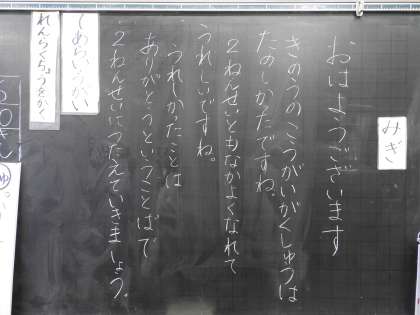 みぎ
おはようございます
きのうのこうがいがくしゅうは
たのしかたですね。
2ねんせいともなかよくなれて
うれしいですね。
うれしかったことは
ありがとうということばで
2ねんせいにつたえていきましょう。